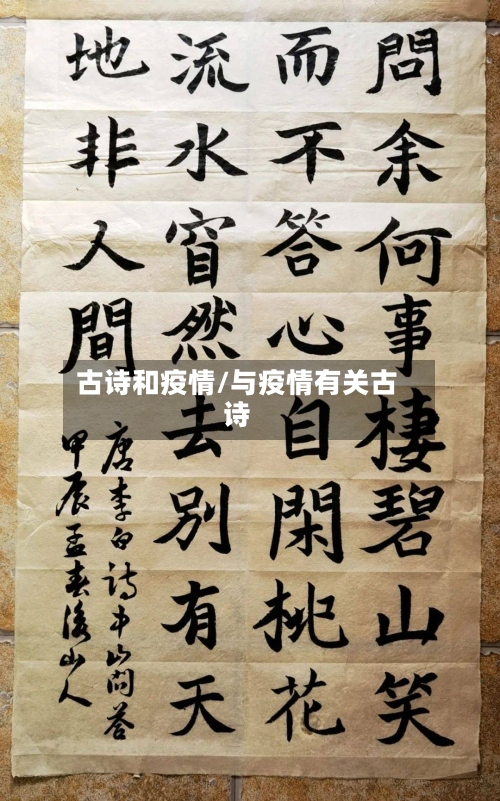 問余何事棲碧山笑
而不答心自閑桃花
流水窅然去別有天
地非人間
唐李白詩中山問答
甲辰孟春後山人
古诗和疫情/与疫情有关古
诗